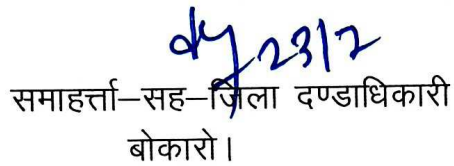 23/7
समाहर्त्ता–सह–जिला दण्डाधिकारी
बोकारो।